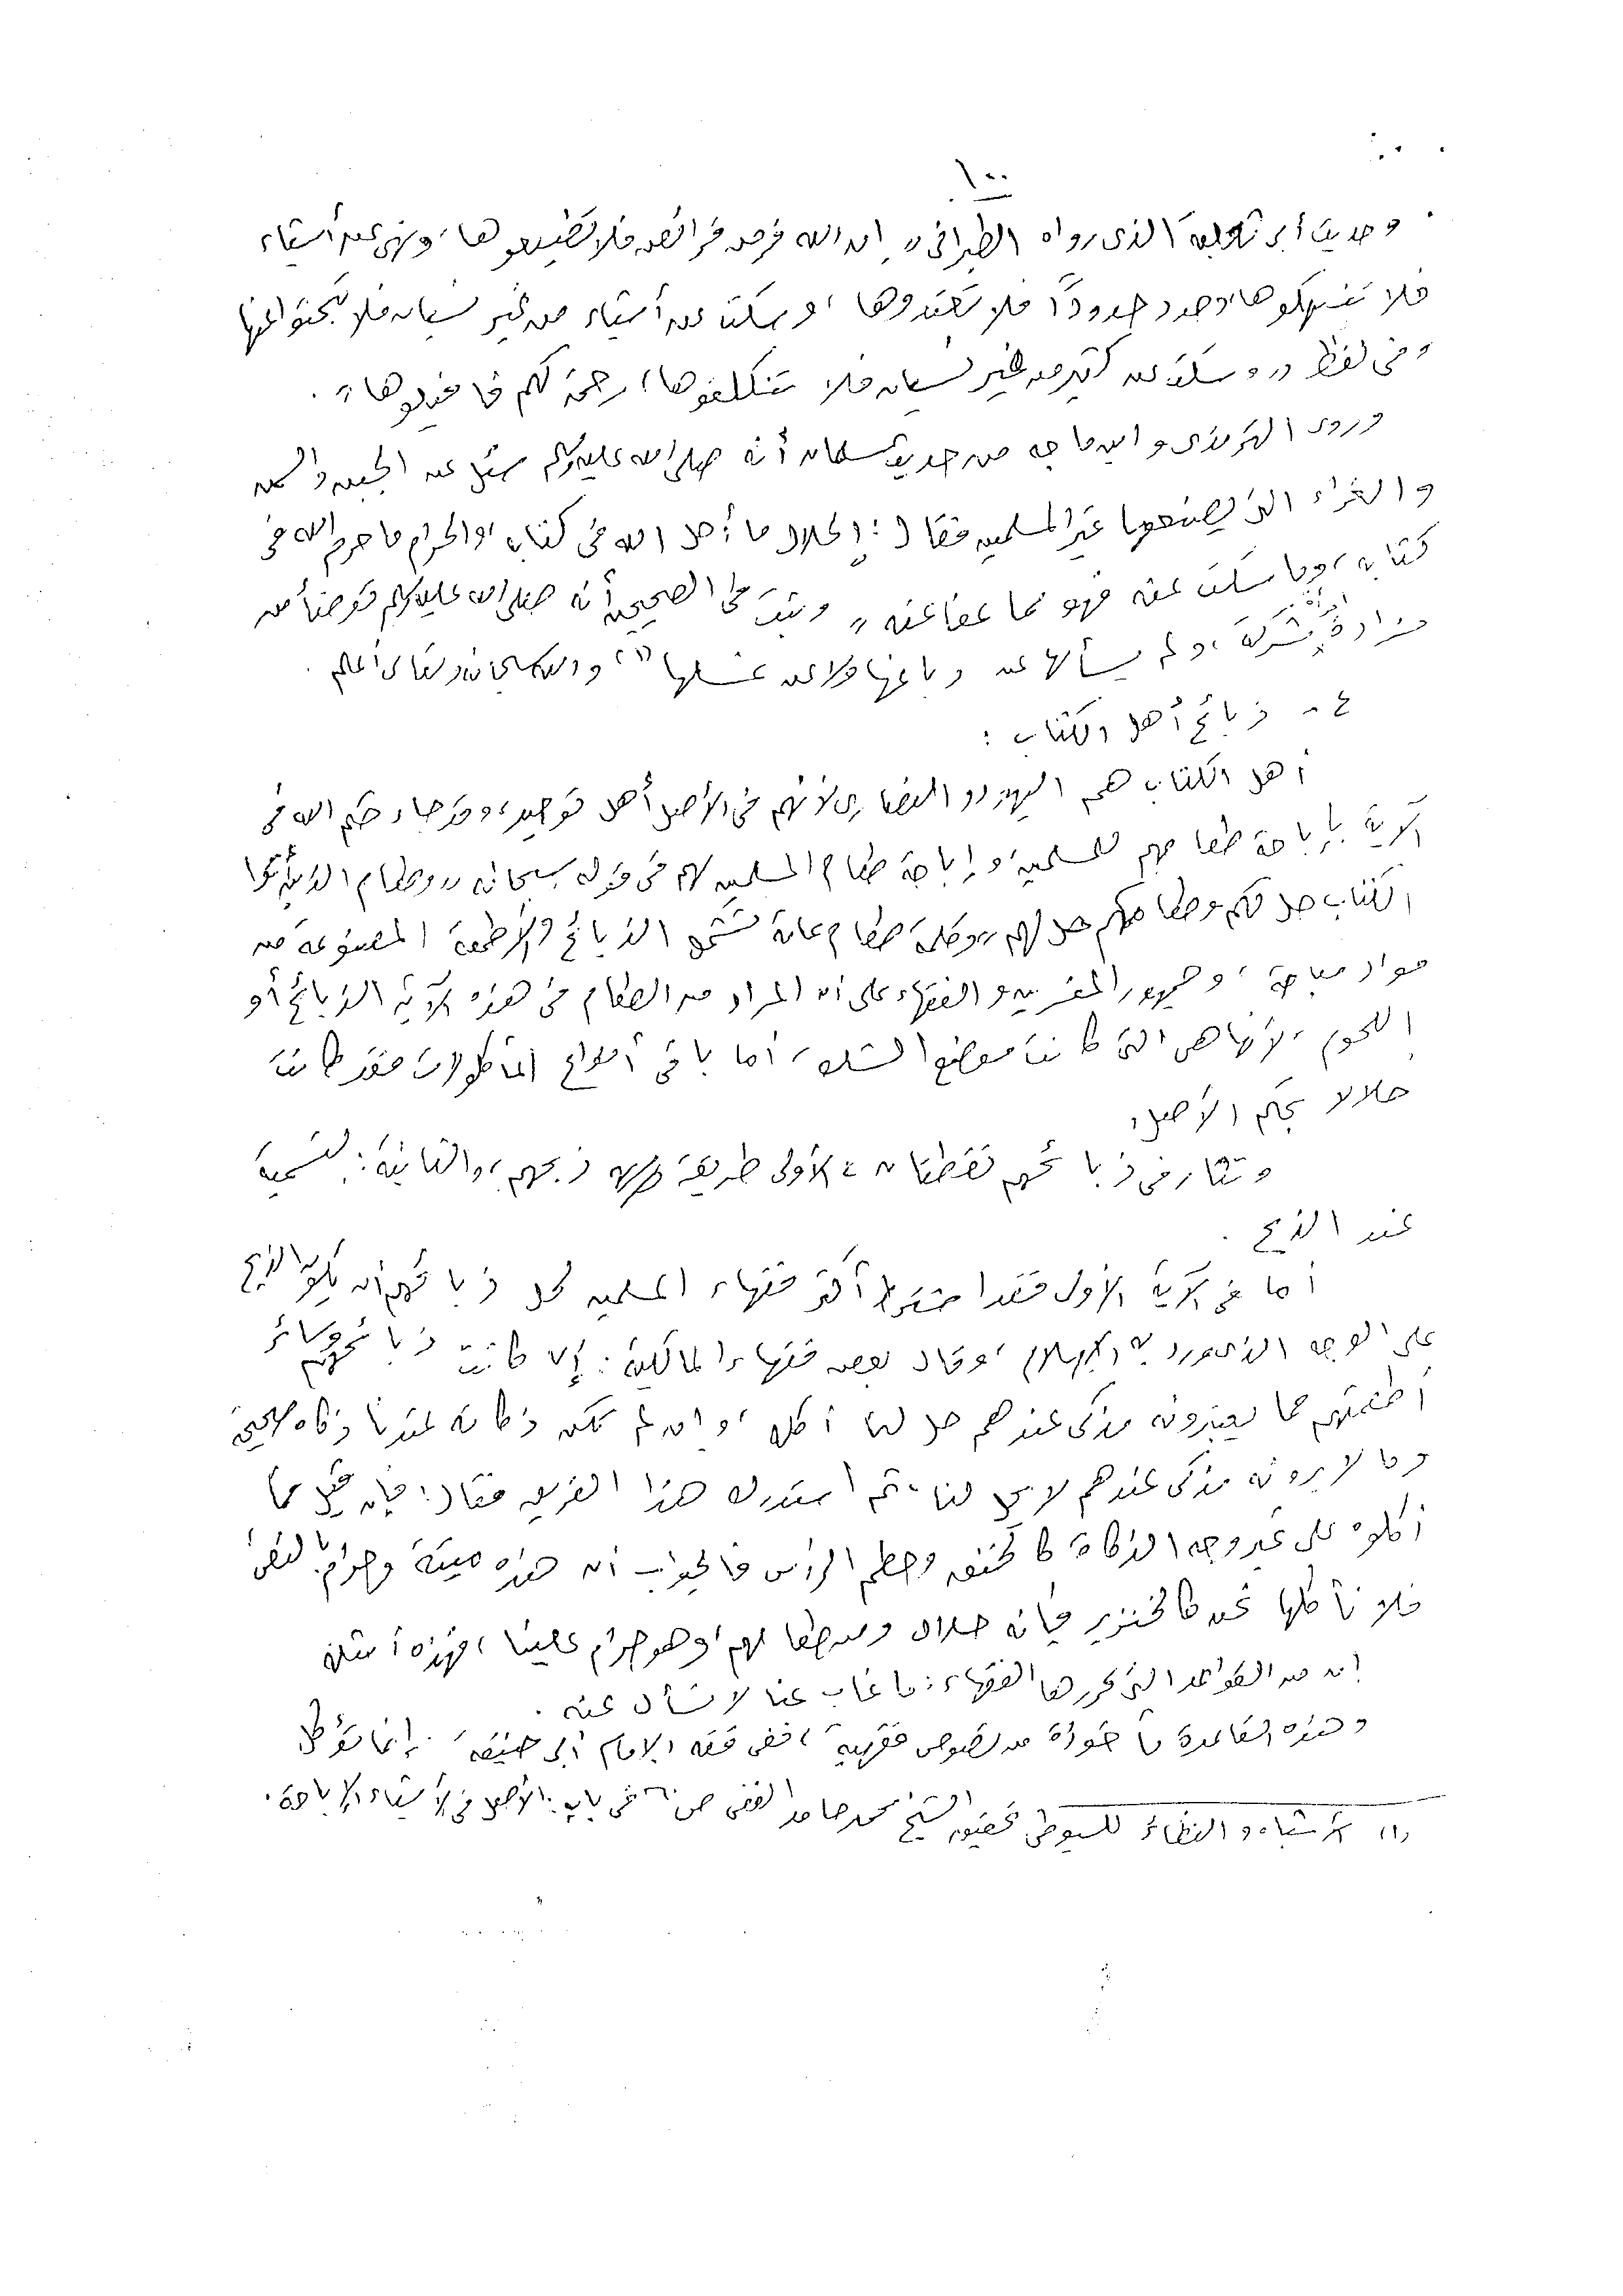 ١٠٠
وحديث أبى ثعلبة الذى رواه الطبرانى " إن الله فرض فرائض فلا تضيعوها، ونهى عن أشياء
فلا تنتهكوها، وحدد حدودًا فلا تعتدوها، وسكت عن أشياء من غير نسيان فلا تبحثوا عنها
وفى لفظ " وسكت عن كثير من غير نسيان فلا تتكلفوها، رحمة لكم فاقبلوها".
وروى الترمذى وابن ماجه من حديث سلمان أنه صلى الله عليه وسلم سئل عن الجبن والسمن
والفراء التى يصنعها غير المسلمين فقال: الحلال ما أحل الله فى كتابه، والحرام ما حرم الله فى
كتابه، وما سكت عنه فهو مما عفا عنه " وثبت فى الصحيح أنه صلى الله عليه وسلم توضأ من
مزادة امرأة مشركة، ولم يسألها عن دباغها ولا عن غسلها (١) والله سبحانه وتعالى أعلم.
٤ - ذبائح أهل الكتاب:
أهل الكتاب هم اليهود والنصارى لأنهم فى الأصل أهل توحيد، وقد جاء حكم الله فى
الآية بإباحة طعامهم للمسلمين، وإباحة طعام المسلمين لهم فى قوله سبحانه " وطعام الذين أوتوا
الكتاب حل لكم وطعامكم حل لهم " وكلمة طعام عامة تشمل الذبائح والأطعمة المصنوعة من
مواد مباحة، وجمهور المفسرين والفقهاء على أن المراد من الطعام فى هذه الآية الذبائح أو
اللحوم، لأنها هى التى كانت موضع الشك، أما باقى أنواع المأكولات فقد كانت
حلالا بحكم الأصل،
وتثار فى ذبائحهم نقطتان: الأولى طريقة ذبحهم، والثانية: التسمية
عند الذبح.
أما فى الآية الأولى فقد اشترط أكثر فقهاء المسلمين لحل ذبائحهم أن يكون الذبح
على الوجه الذى ورد به الإسلام، وقال بعض فقهاء المالكية: إن كانت ذبائحهم وسائر
أطعمتهم مما يعتبرونه مذكى عندهم حل لنا أكله، وإن لم تكن ذكاته عندنا ذكاة صحيحة
وما لا يرونه مذكى عندهم لا يحل لنا، ثم استدرك هذا الفريق فقال: فإن قيل مما
أكلوه على غير وجه الذكاة كالخنق وحطم الرأس فالجواب أن هذه ميتة وحرام بالنص
فلا نأكلها نحن كالخنزير فإنه حلال ومن طعامهم، وهو حرام علينا، فهذه أمثلة
إن من القواعد التى يحررها الفقهاء: ما غاب عنا لا نسأل عنه.
وهذه القاعدة مأخوذة من نصوص فقهية، ففى فقه الإمام أبى حنيفة: إنما تؤكل
(١) الأشباه والنظائر للسيوطى تحقيق الشيخ محمد حامد الفقى ص ٦٠ فى باب: الأصل فى الأشياء الإباحة.